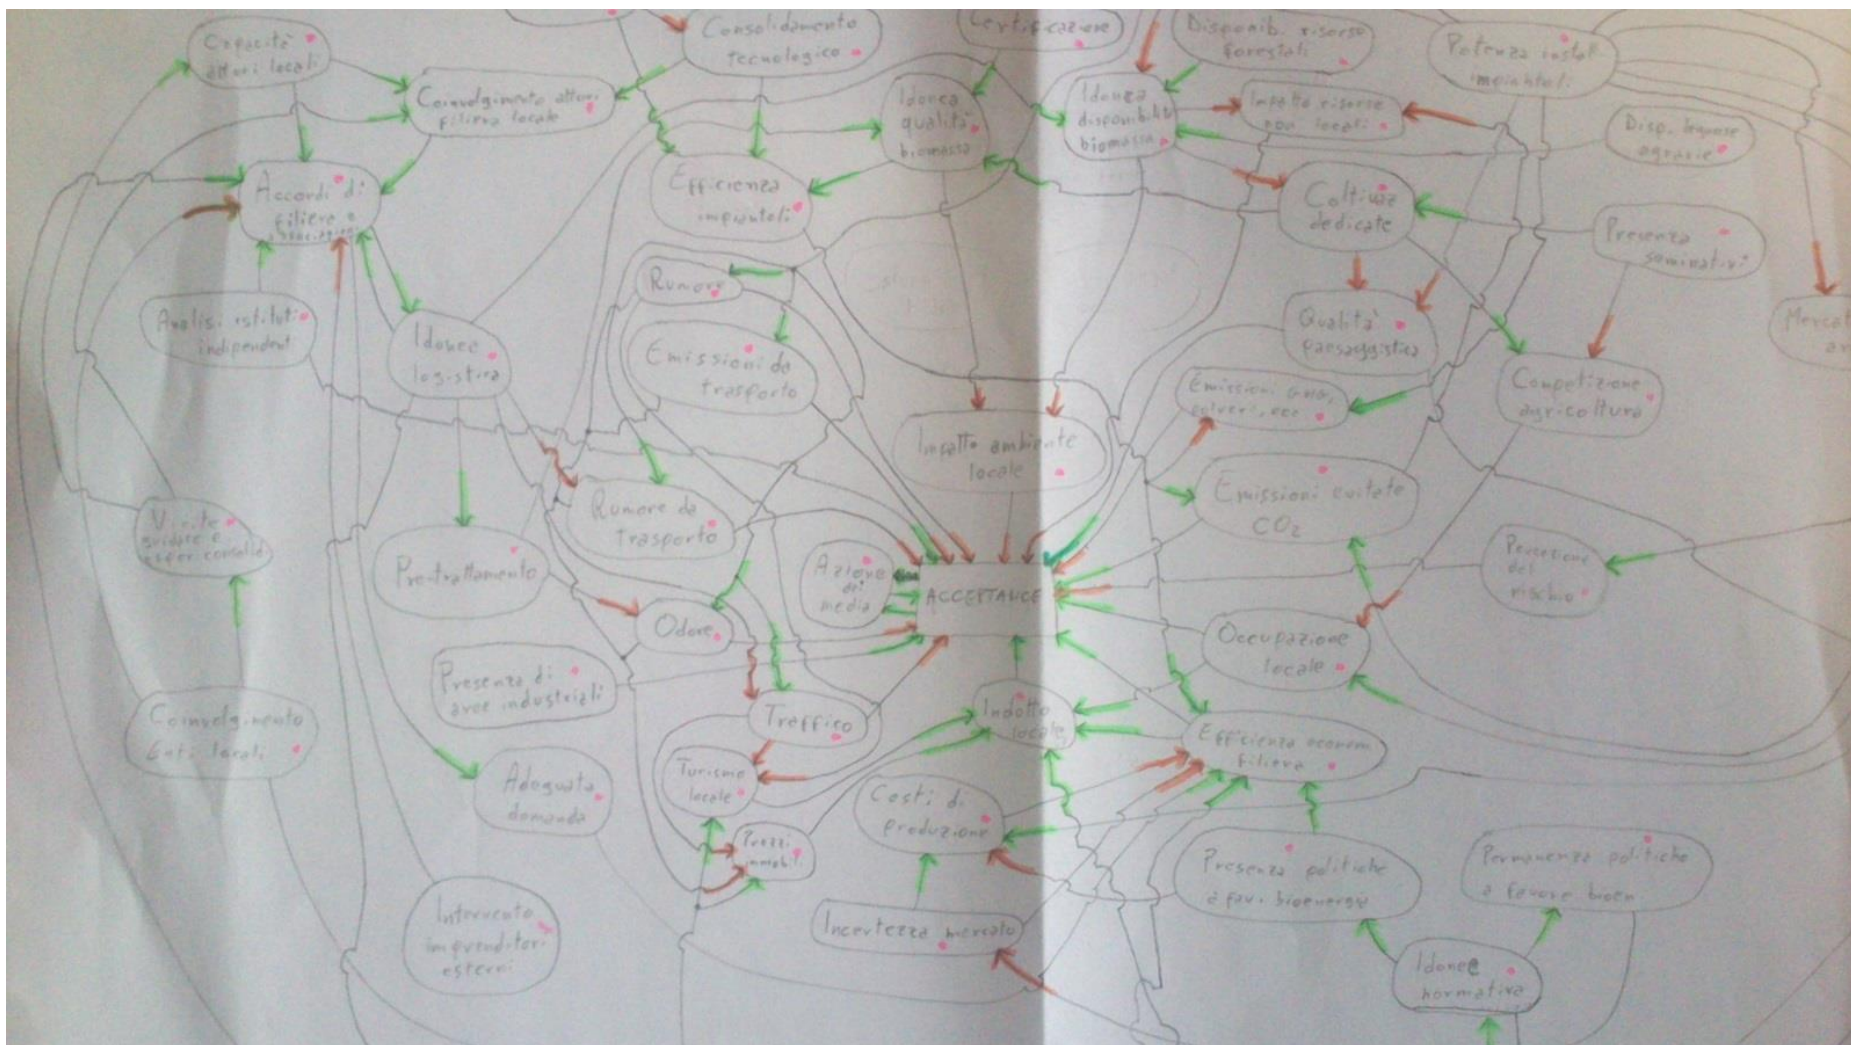 Capacità
attori locali
Consolidamento
tecnologico
Certificazione
Disponib. risorse
forestali
Potenza install.
impiantoli
Coinvolgimento attori
filiera locale
Idonea
qualità
biomassa
Idonea
disponibilità
biomassa
Impatto risorse
non locali
Disp. legnose
agrarie
Accordi di
filiere e
Efficienza
impiantoli
Coltivaz
dedicate
Presenza
seminativi
Rumore
Analisi istituti
indipendent
Idonee
logistica
Emissioni da
trasporto
Qualità
paesaggistica
Mercat
Emissioni GHG,
polveri, ecc
Competizione
agricoltura
Impatto ambiente
locale
Emissioni evitate
CO2
Rumore da
trasporto
Visite
guidate e
Pre-trattamento
Azione
dei
media
ACCEPTANCE
Percezione
del
rischio
Odore
Occupazione
locale
Presenza di
aree industriali
Coinvolgimento
Enti locali
Traffico
Indotto
locale
Efficienza econom
filiera
Adeguata
domanda
Turismo
locale
Costi di
produzione
Prezzi
immobili
Presenza politiche
a fav. bioenergy
Permanenza politiche
a favore bioen.
Intervento
imprenditori
esterni
Incertezza mercato
Idonee
normativa